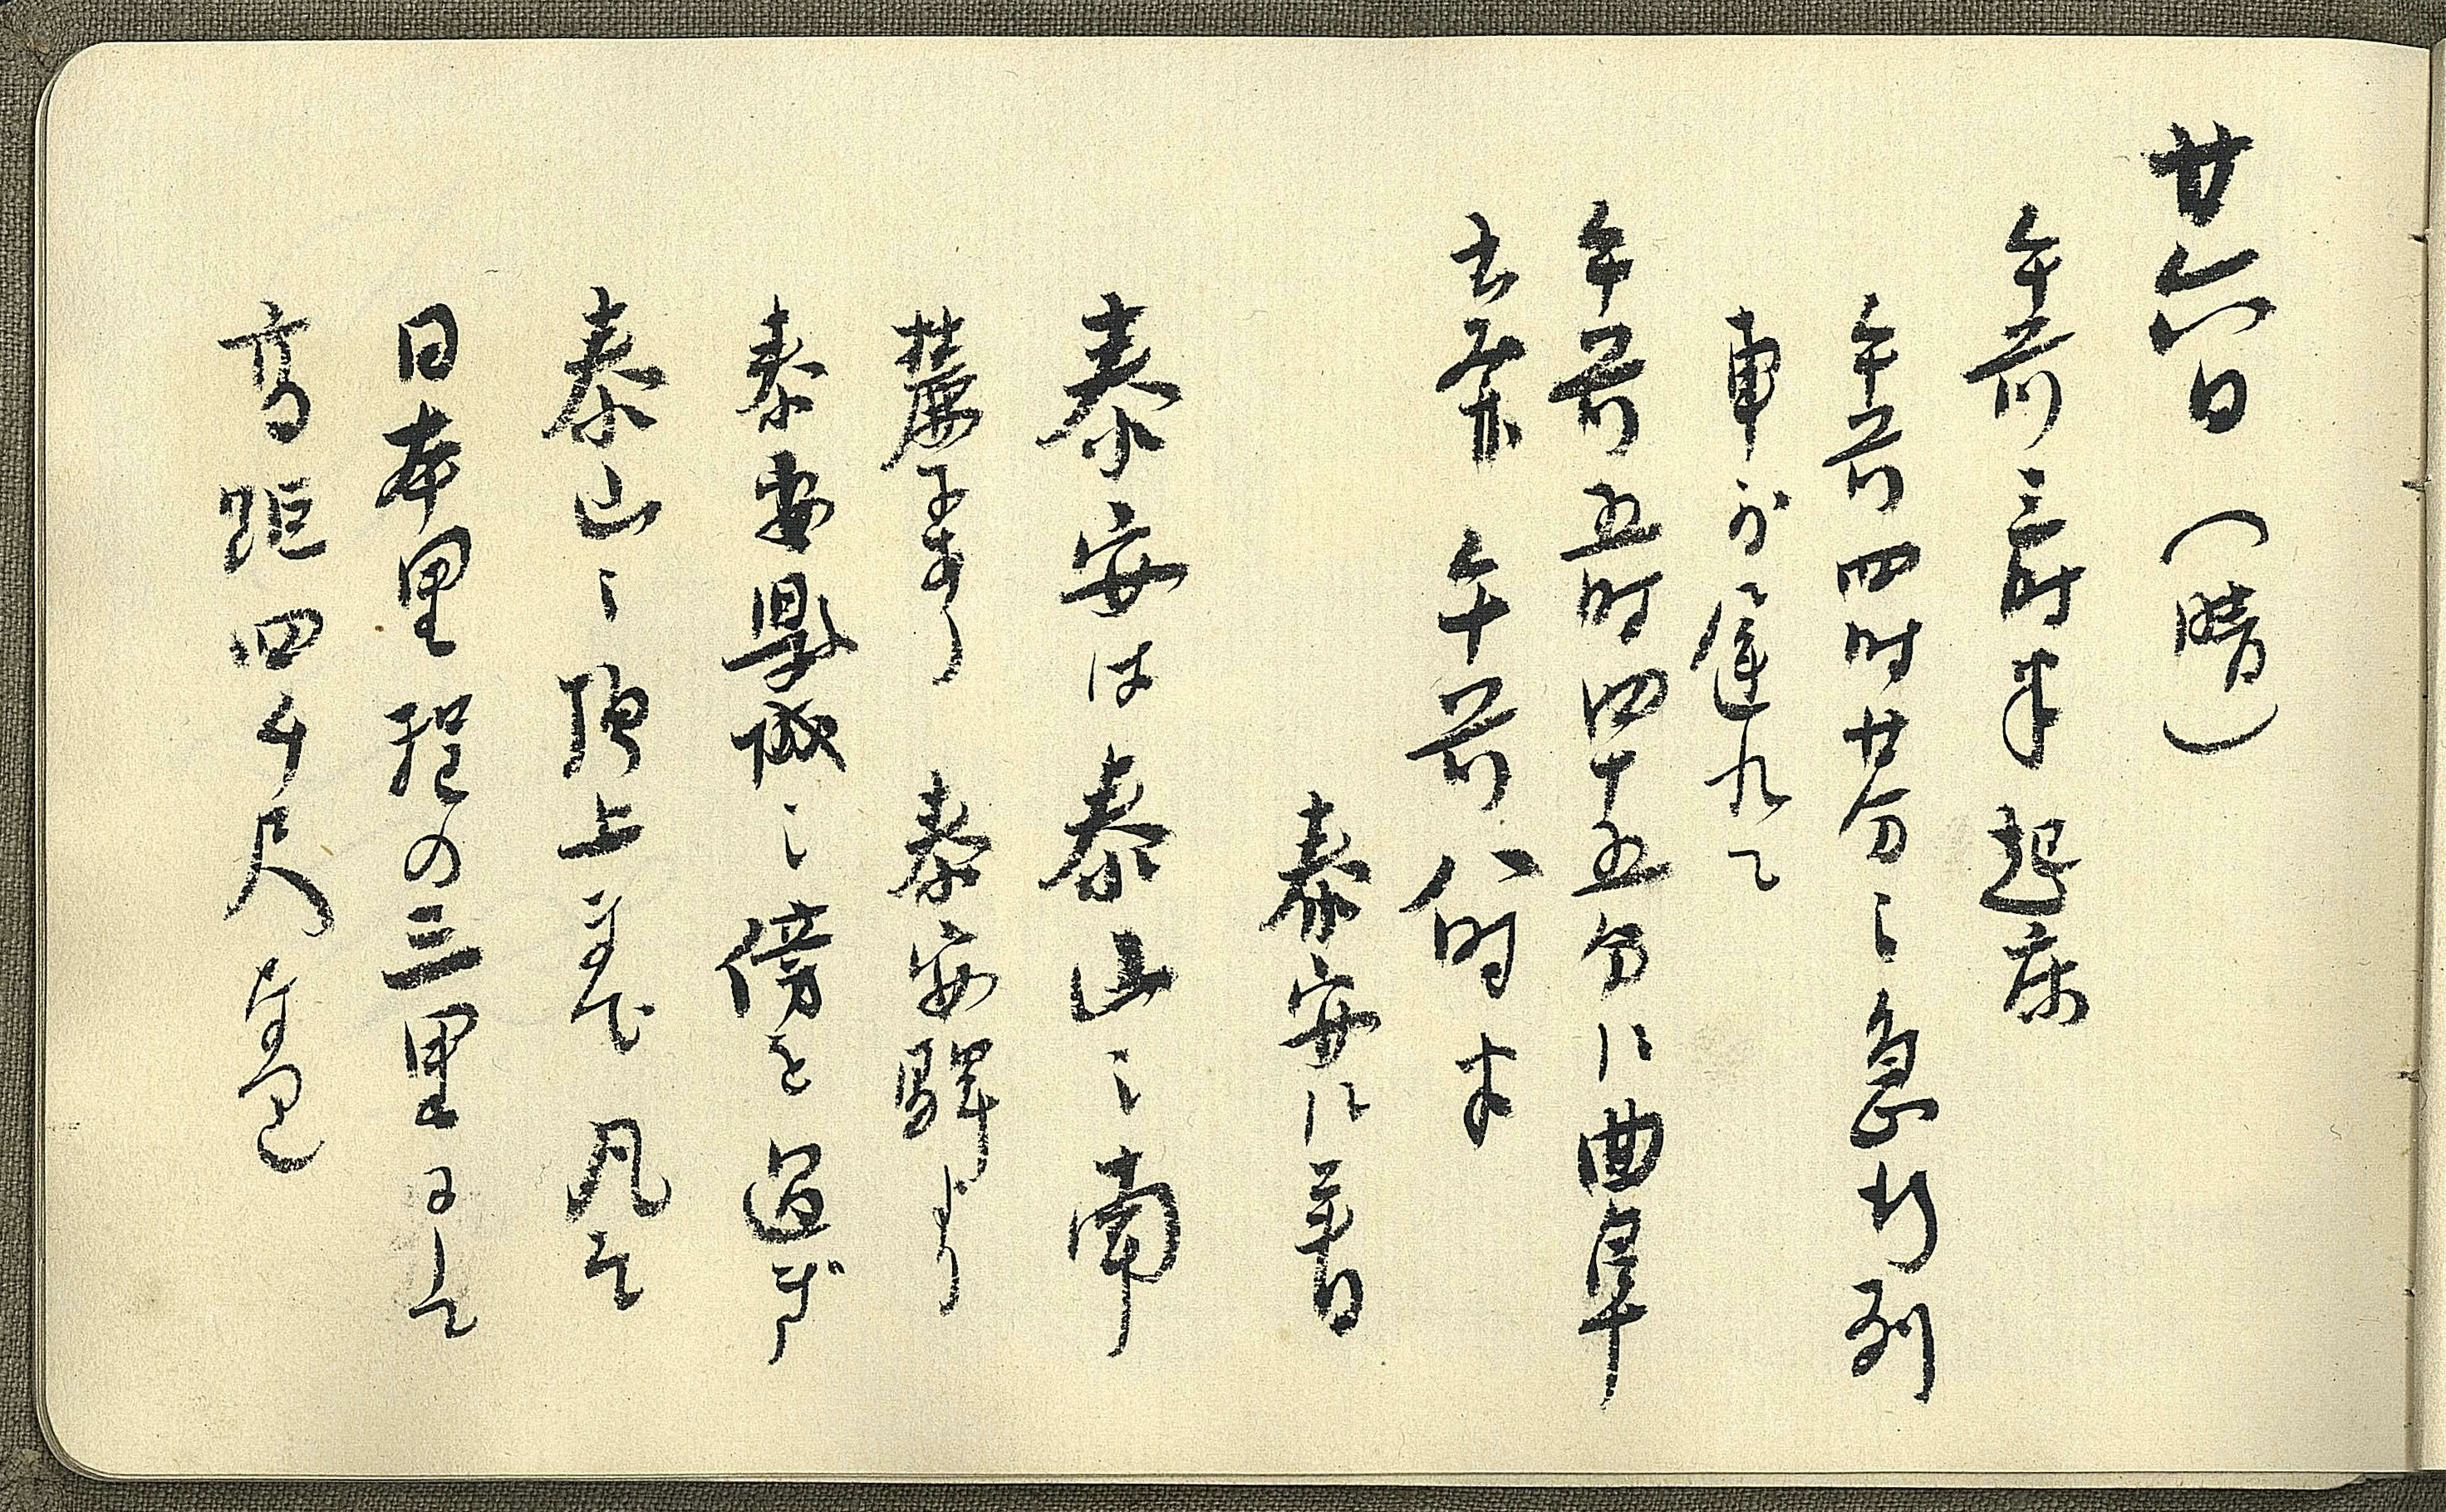 廿六日(晴)
午前三時半起床
午前四時廿分之急行列
車が遅れて
午前五時四十五分に曲阜
去案 午前八時半
泰安に着
泰安は泰山之南
麓にあり 泰安驛より
泰安縣城之傍を過ぎ
泰山之頂上まで凡そ
日本里程の三里にして
高距四千尺なるべし